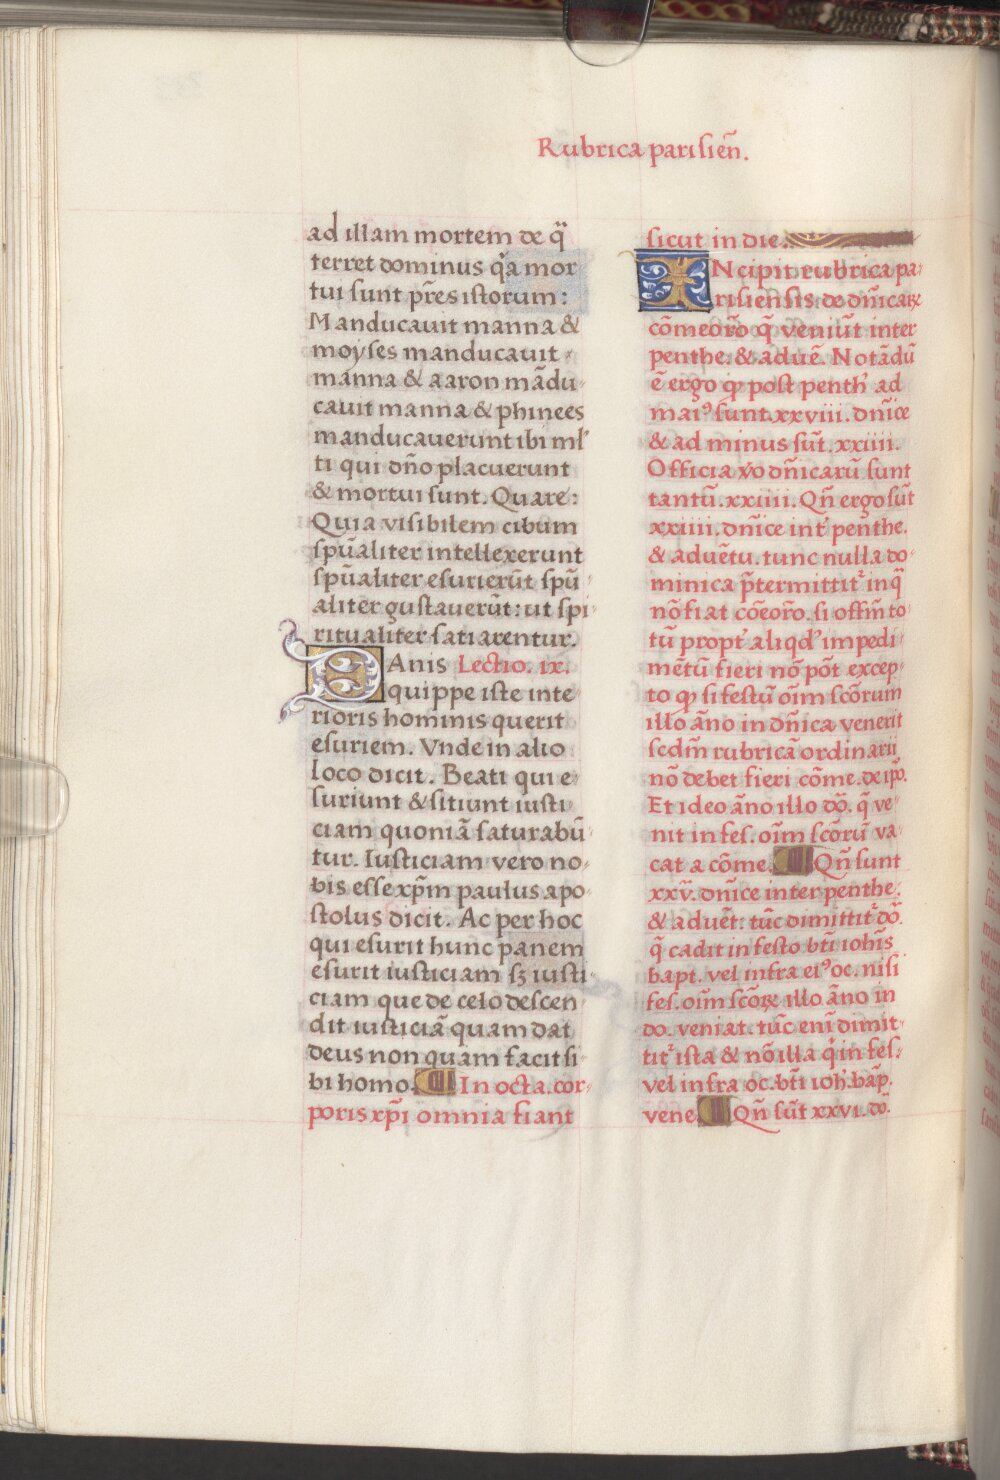 Rubrica parisien̄.
ad illam mortem de q̄
terret dominus q̄a mor
tui sunt p̄res istorum:
Manducauit manna &
moyses manducauit
manna & aaron mādu-
cauit manna & phinees
manducauerunt ibi ml'
ti qui dn̄o placuerunt
& mortui sunt. Quare:
Quia visibilem cibum
sp̄ualiter intellexerunt
sp̄ualiter esurierūt spū-
aliter gustauerūt: ut spi-
ritualiter satiarentur.
PAnis Lectio. ix.
quippe iste inte
rioris hominis querit
esuriem. Vnde in alio
loco dicit. Beati qui e-
suriunt & sitiunt iusti
ciam quoniā saturabū-
tur. Iusticiam vero no-
bis esse xp̄m paulus apo-
stolus dicit. Ac per hoc
qui esurit hunc panem
esurit iusticiam sꝫ iusti-
ciam que de celo descen
dit iusticiā quam dat
deus non quam facit si-
bi homo. In octa. cor-
poris xp̄i omnia fiant
sicut in die.
INcipit rubrica pa-
risiensis de dn̄icaꝝ
cōmeor̄o q̄ veniūt inter
penthe. & aduē. Notādū
ē ergo ꝙ post penth' ad
maiꝰ sunt. xxviii. dn̄ice
& ad minus sūt. xxiiii.
Officia v̊o dn̄icarū sunt
tantū. xxiiii. Qn̄ ergo sūt
xxiiii. dn̄ice int' penthe.
& aduētu. tunc nulla do-
minica p̄termittit' in q̄
nō fiat cōeor̄o. si offm̄ to-
tū propt' aliqd' impedi-
mētū fieri nō pōt excep-
to ꝙ si festū oīm scōrum
illo āno in dn̄ica venerit
scdm̄ rubricā ordinarii
nō debet fieri cōme. de ip̄o.
Et ideo āno illo dō. q̄ ve-
nit in fes. oīm scōrū va-
cat a cōme. Qn̄ sunt
xxv̄. dn̄ice inter penthe.
& aduēt. tūc dimittit' dō.
q̄ cadit in festo bt̄i ioh̄is
bapt. vel infra eiꝰ oc. nisi
fes. oīm scōꝝ illo āno in
do. veniat. tūc enī dimit-
tit' ista & nō illa q̄ in fes.
vel infra oc. bt̄i ioh̄. bap̄.
vene. Qn̄ sūt xxvi. dō.